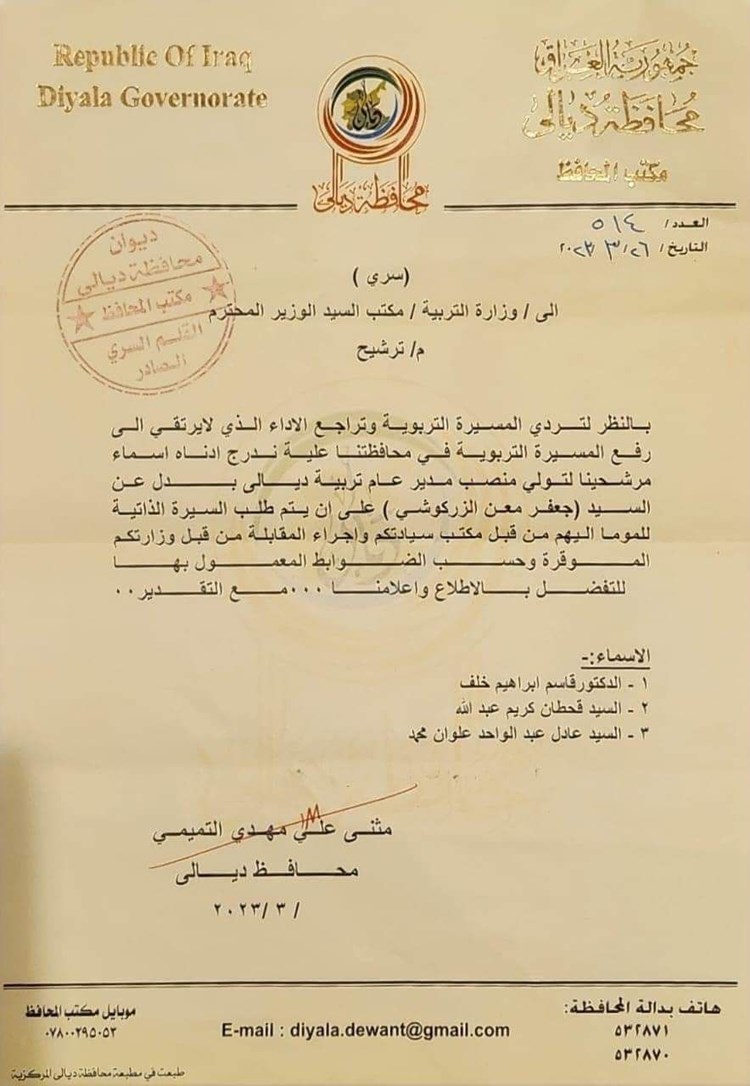 Republic Of Iraq
Diyala Governorate
جمهورية العراق
محافظة ديالى
مكتب المحافظ
محافظة ديالى
العدد / ٥١٤
التاريخ / ٢٦ / ٣ / ٢٠٢٣
ديوان
محافظة ديالى
مكتب المحافظ
القلم السري
الصادر
( سري )
الى / وزارة التربية / مكتب السيد الوزير المحترم
م/ ترشيح
بالنظر لتردي المسيرة التربوية وتراجع الاداء الذي لايرتقي الى
رفع المسيرة التربوية في محافظتنا علية ندرج ادناه اسماء
مرشحينا لتولي منصب مدير عام تربية ديالى بدل عن
السيد (جعفر معن الزركوشي ) على إن يتم طلب السيرة الذاتية
للموما اليهم من قبل مكتب سيادتكم واجراء المقابلة من قبل وزارتكم
الموقرة وحسب الضوابط المعمول بها
للتفضل بالاطلاع واعلامنا ٠٠٠مع التقدير٠٠
الاسماء:-
١ - الدكتورقاسم ابراهيم خلف
٢ - السيد قحطان كريم عبد الله
٣ - السيد عادل عبد الواحد علوان محمد
مثنى علي مهدي التميمي
محافظ ديالى
/ ٣ /٢٠٢٣
هاتف بدالة المحافظة:
٥٣٢٨٧١
٥٣٢٨٧٠
E-mail : diyala.dewant@gmail.com
موبايل مكتب المحافظ
٠٧٨٠٠٢٩٥٠٥٢
طبعت في مطبعة محافظة ديالى المركزية